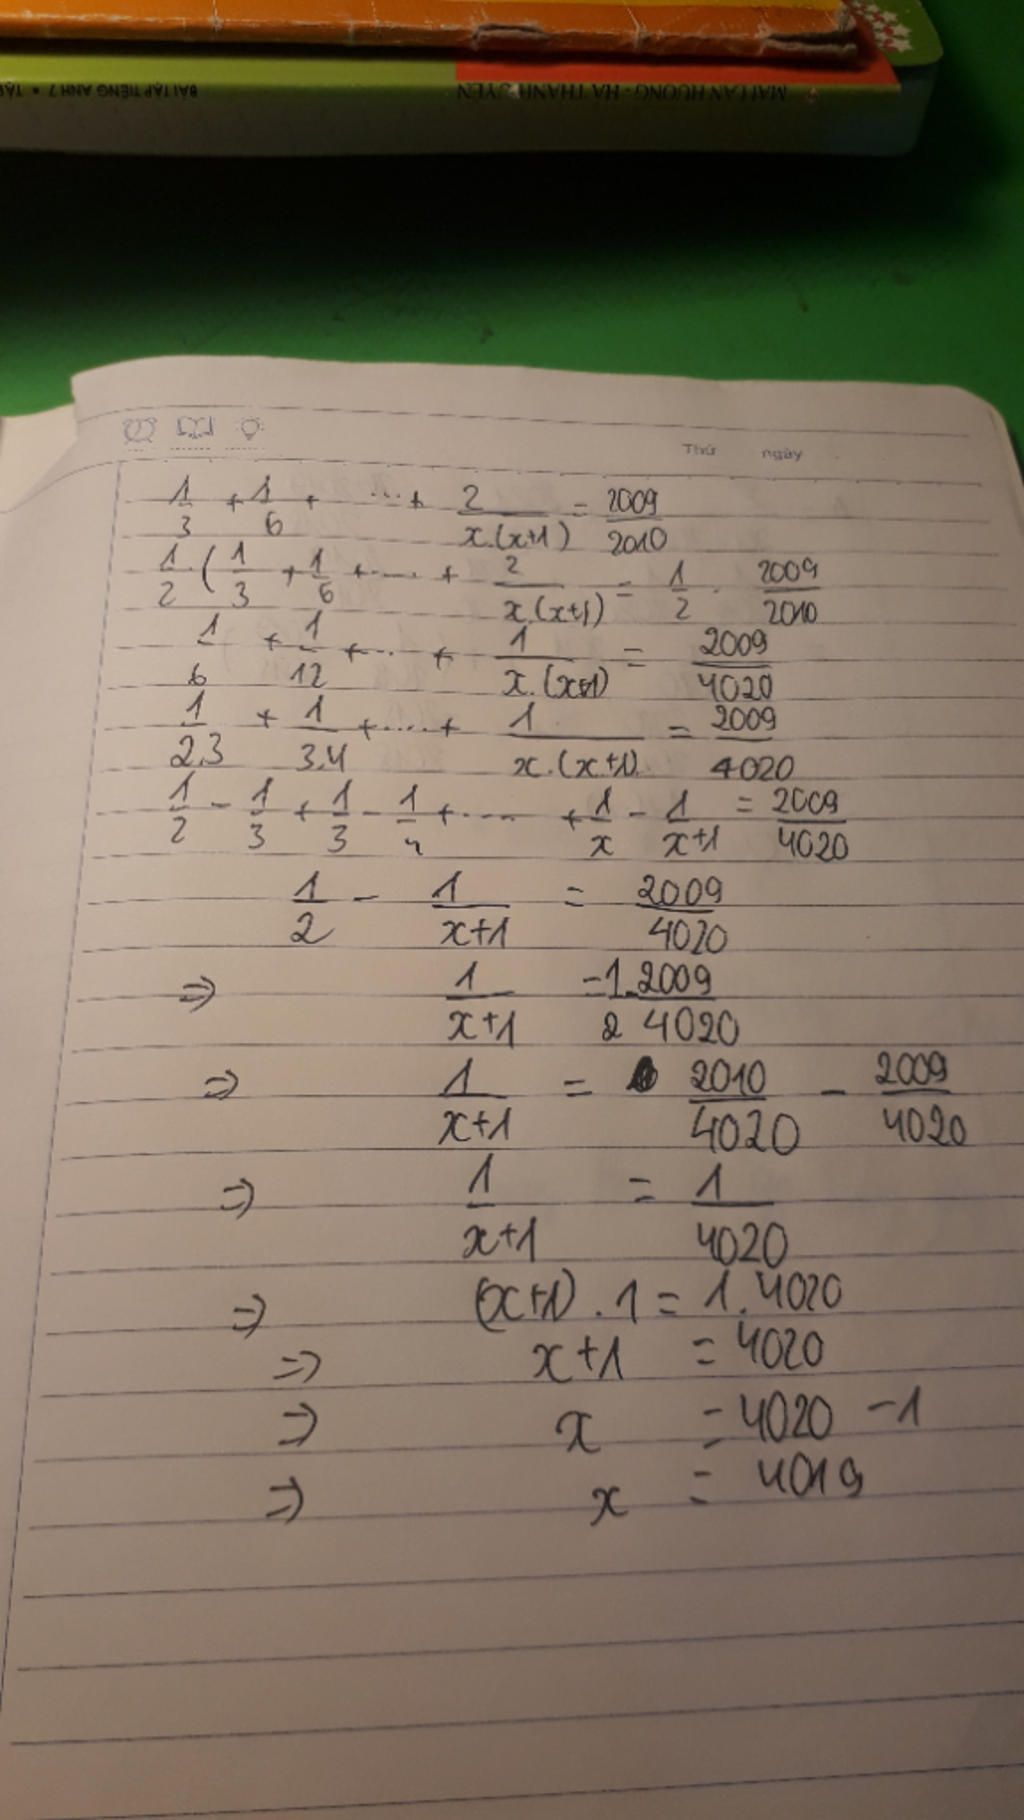 MAI LAN HƯƠNG - HÀ THANH UYÊN
BÀI TẬP TIẾNG ANH 7 •
Thứ ngày
1/3 + 1/6 + ....+ 2/x.(x+1) = 2009/2010
1/2.(1/3 + 1/6 +....+ 2/x.(x+1) = 1/2 . 2009/2010
1/6 + 1/12 +...+ 1/x.(x+1) = 2009/4020
1/2.3 + 1/3.4 +.....+ 1/x.(x+1) = 2009/4020
1/2 - 1/3 + 1/3 - 1/4 +.... + 1/x - 1/x+1 = 2009/4020
1/2 - 1/x+1 = 2009/4020
=> 1/x+1 = 1/2 - 2009/4020
=> 1/x+1 = 2010/4020 - 2009/4020
=> 1/x+1 = 1/4020
=> (x+1) . 1 = 1.4020
=> x+1 = 4020
=> x = 4020 -1
=> x = 4019